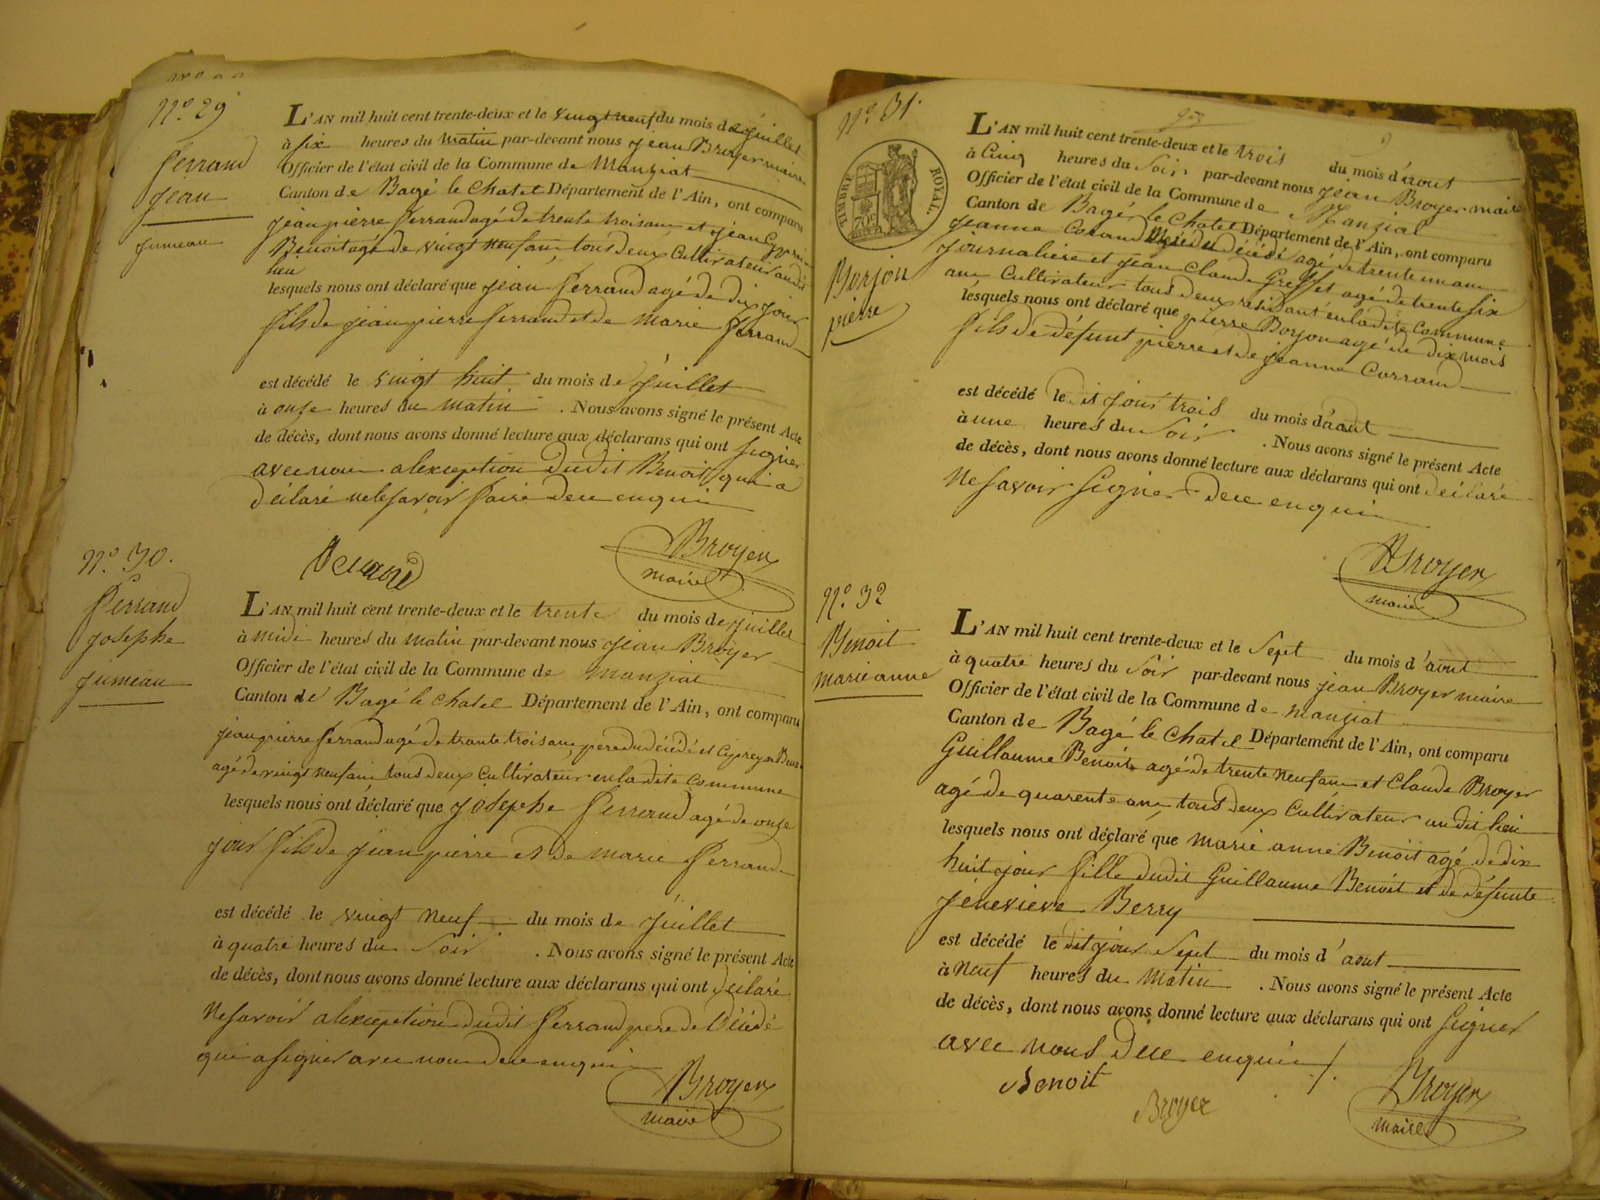 N.° 29
ferrand
Jean
Jumeau
L'AN mil huit cent trente-deux et le vingt neuf du mois de Juillet
à six heures du matin par-devant nous Jean Broyer maire
Officier de l'état civil de la Commune de Manziat
Canton de Bagé le Chatel Département de l'Ain, ont comparu
Jean pierre ferrand agé de trente trois ans et Jean
Benoit agé de vingt neuf ans tous deux Cultivateur audit
lieu
lesquels nous ont déclaré que Jean ferrand agé de dix jour
fils de Jean pierre ferrand et de Marie ferrand
est décédé le vingt huit du mois de Juillet
à onze heures du matin . Nous avons signé le présent Acte
de décès, dont nous avons donné lecture aux déclarans qui ont signer
avec nous alexception dudit Benoit qui a
déclaré ne le savoir faire de ce enquis
Broyer
maire
N.° 30.
ferrand
Josephe
Jumeau
L'AN mil huit cent trente-deux et le trente du mois de Juillet
à midi heures du matin par-devant nous Jean Broyer
Officier de l'état civil de la Commune de Manziat
Canton de Bagé le Chatel Département de l'Ain, ont comparu
Jean pierre ferrand agé de trante trois ans pere du décédé et
agé de vingt neuf ans tous deux Cultivateur en la dite Commune
lesquels nous ont déclaré que Josephe ferrand agé de onze
jour fils de Jean pierre et de marie ferrand
est décédé le vingt neuf du mois de Juillet
à quatre heures du Soir . Nous avons signé le présent Acte
de décès, dont nous avons donné lecture aux déclarans qui ont déclaré
Ne savoir alexception dudit ferrand pere de
qui a signer avec nous de ce enquis
Broyer
maire
N.° 31.
TIMBRE ROYAL.
Borjon
pierre
L'AN mil huit cent trente-deux et le trois du mois d'aout
à Cinq heures du Soir par-devant nous Jean Broyer maire
Officier de l'état civil de la Commune de Manziat
Canton de Bagé le Chatel Département de l'Ain, ont comparu
Jeanne agé de trente un ans
Journaliere et Jean Claude Greffet agé de trente six
ans Cultivateur tous deux residant en la dite Commune
lesquels nous ont déclaré que pierre Borjon agé de dix mois
fils de défunt pierre et de Jeanne Corrand
est décédé le dit jour trois du mois d'aout
à une heures du Soir . Nous avons signé le présent Acte
de décès, dont nous avons donné lecture aux déclarans qui ont déclaré
Ne savoir signer de ce enquis
Broyer
maire
N.° 32
Benoit
marie anne
L'AN mil huit cent trente-deux et le Sept du mois d'aout
à quatre heures du Soir par-devant nous Jean Broyer maire
Officier de l'état civil de la Commune de Manziat
Canton de Bagé le Chatel Département de l'Ain, ont comparu
Guillaume Benoit agé de trente neuf ans et Claude Broyer
agé de quarente ans tous deux Cultivateur au dit lieu
lesquels nous ont déclaré que marie anne Benoit agé de dix
huit jour fille dudit Guillaume Benoit et de défunte
Jenevieve Berry
est décédé le dit jour Sept du mois d'aout
à neuf heures du Matin . Nous avons signé le présent Acte
de décès, dont nous avons donné lecture aux déclarans qui ont signer
avec nous de ce enquis
Benoit
Broyer
Broyer
maire